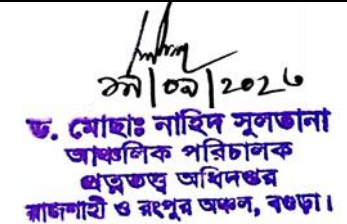 ড. মোছাঃ নাহিদ সুলতানা
আঞ্চলিক পরিচালক
প্রত্নতত্ত্ব অধিদপ্তর
রাজশাহী ও রংপুর অঞ্চল, বগুড়া।